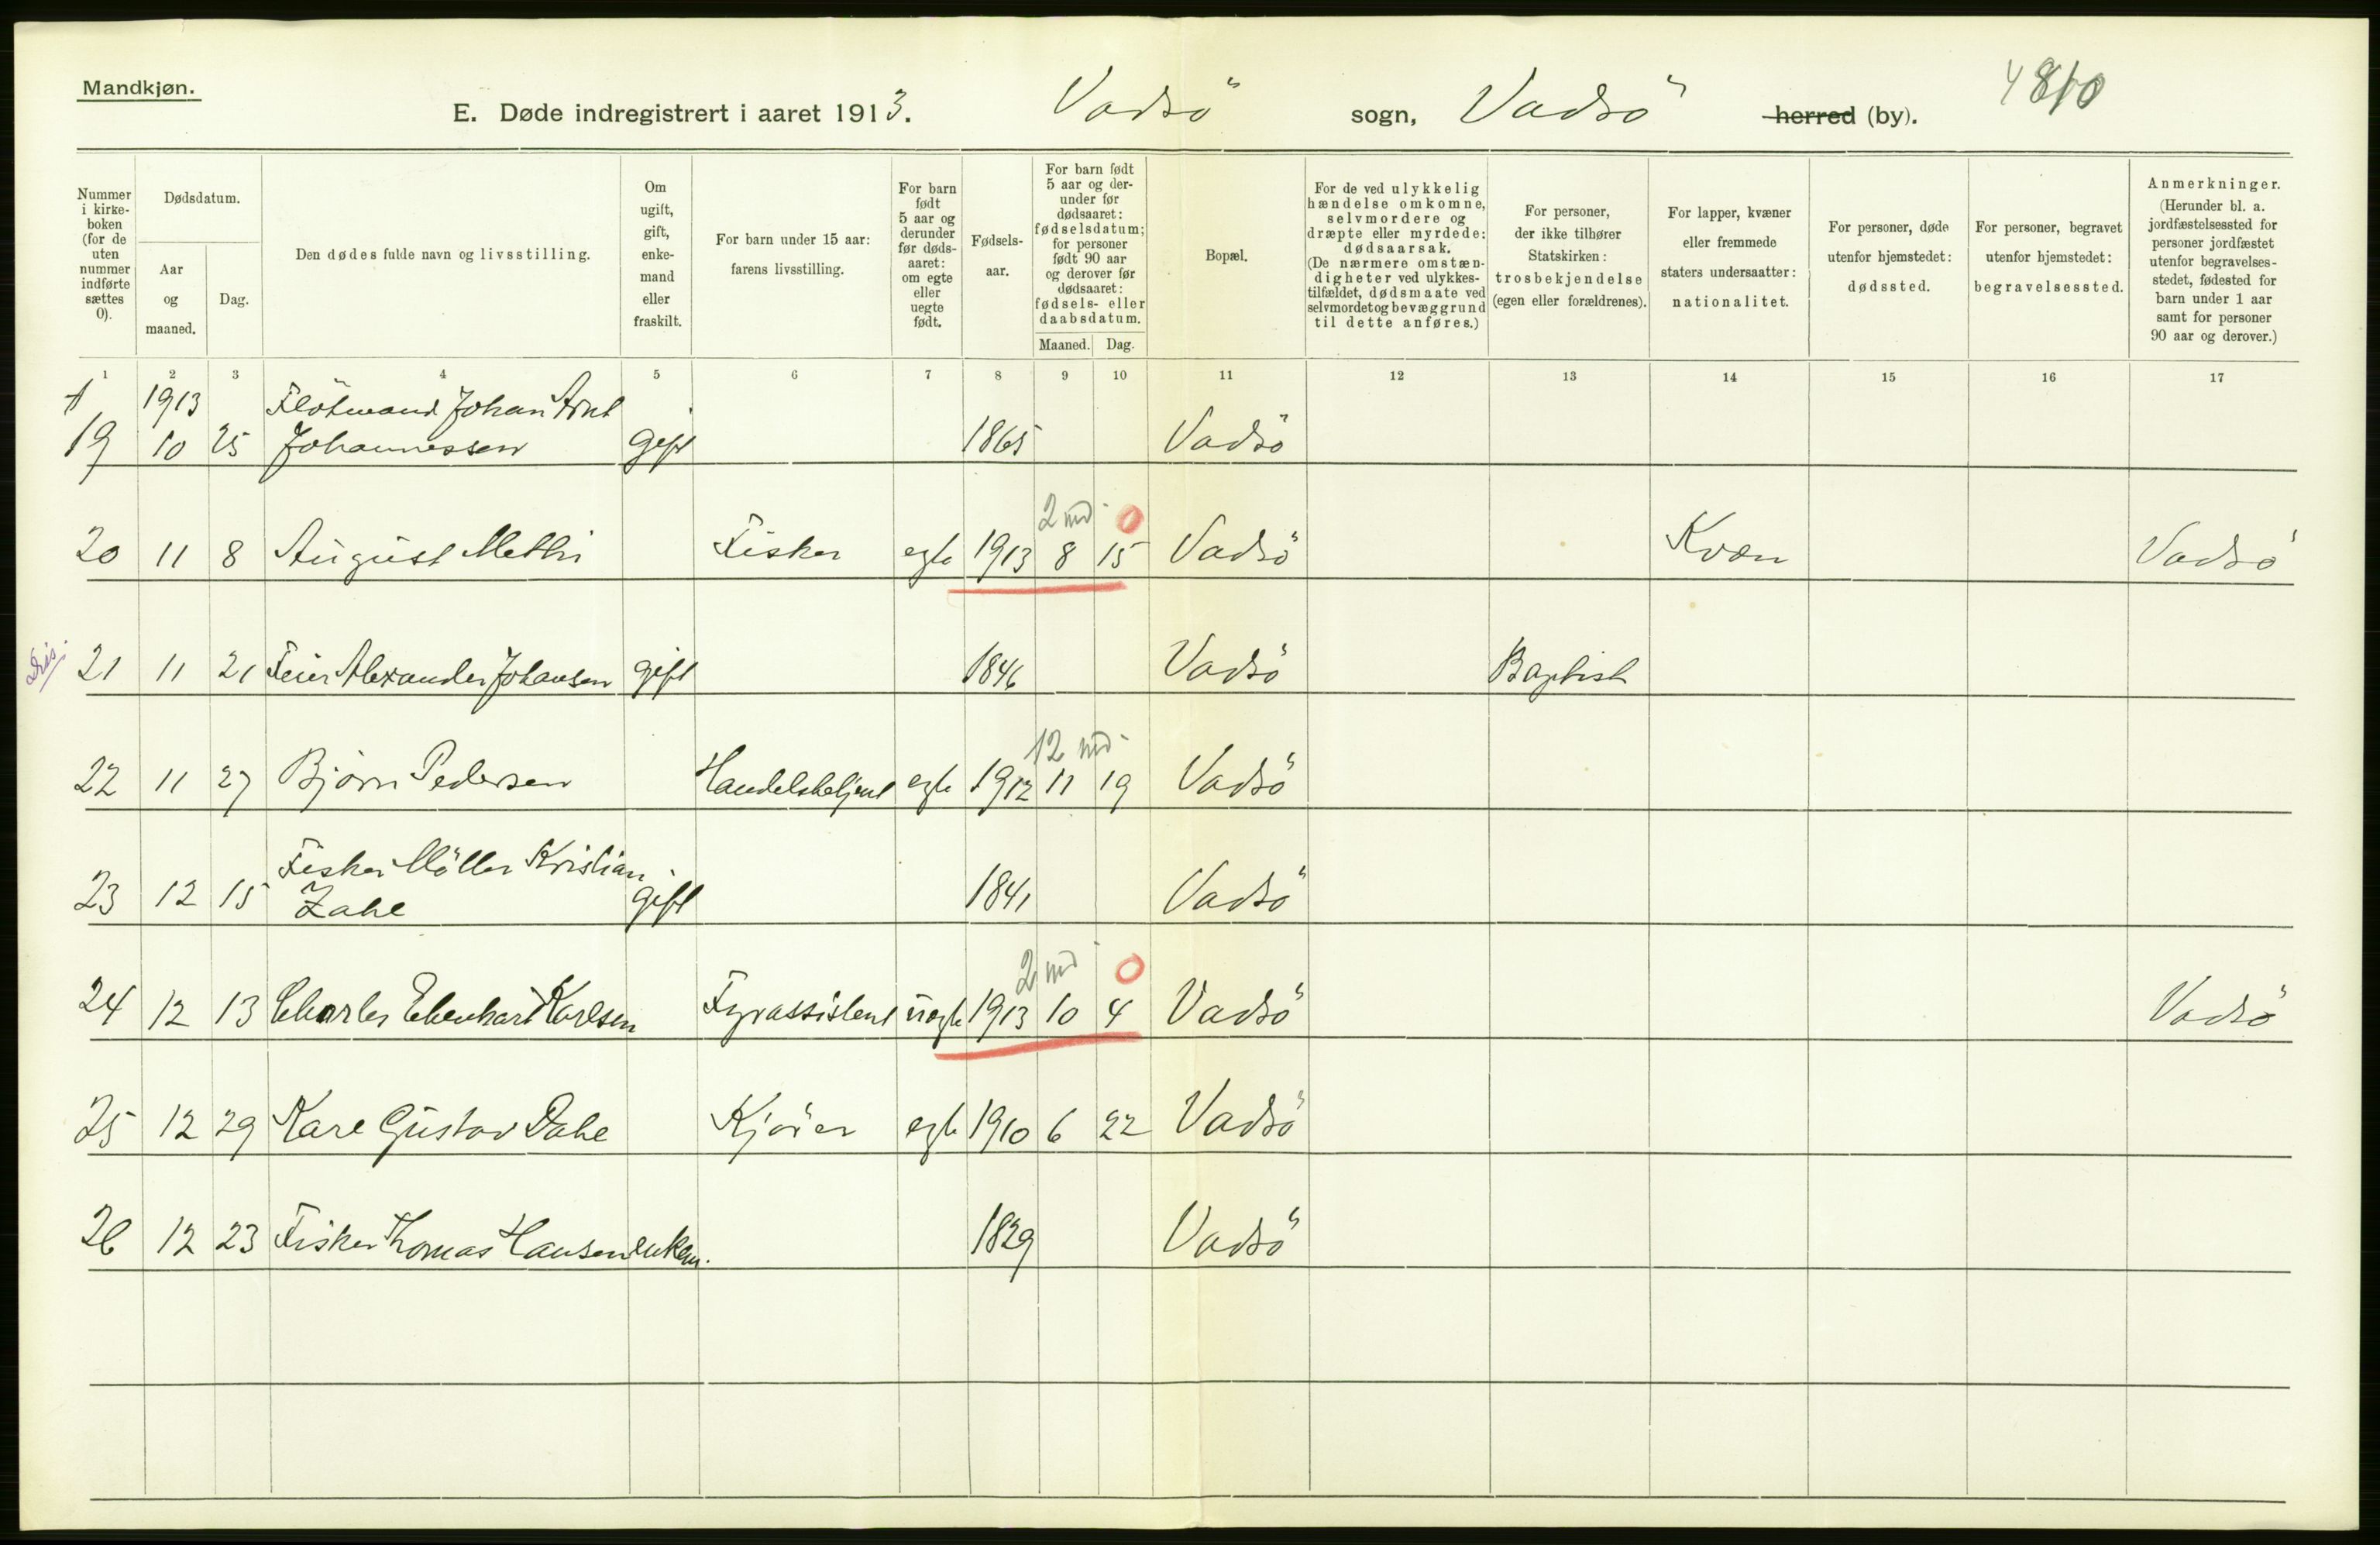 Mandkjøn.
E. Døde indregistrert i aaret 1913. Vadsö sogn, Vadsö herred (by).
Nummer i kirke-boken (for de uten nummer indførte sættes 0).
Dødsdatum.
Aar og maaned.
Dag.
Den dødes fulde navn og livsstilling.
Om ugift, gift, enke-mand eller fraskilt.
For barn under 15 aar: farens livsstilling.
For barn født 5 aar og derunder før døds-aaret: om egte eller uegte født.
Fødsels-aar.
For barn født 5 aar og der-under før dødsaaret: fødselsdatum; for personer født 90 aar og derover før dødsaaret: fødsels- eller daabsdatum.
Maaned.
Dag.
Bopæl.
For de ved ulykkelig hændelse omkomne, selvmordere og dræpte eller myrdede: dødsaarsak. (De nærmere omstæn-digheter ved ulykkes-tilfældet, dødsmaate ved selvmordet og bevæggrund til dette anføres.)
For personer, der ikke tilhører Statskirken: trosbekjendelse (egen eller forældrenes).
For lapper, kvæner eller fremmede staters undersaatter: nationalitet.
For personer, døde utenfor hjemstedet: dødssted.
For personer, begravet utenfor hjemstedet: begravelsessted.
Anmerkninger. (Herunder bl. a. jordfæstelsessted for personer jordfæstet utenfor begravelses-stedet, fødested for barn under 1 aar samt for personer 90 aar og derover.)
1 2 3 4 5 6 7 8 9 10 11 12 13 14 15 16 17
1913 Flötmand Johan Arnt
19 10 25 Johannessen gift 1865 Vadsö
2 md. 0
20 11 8 August Mathi Fisker egte 1913 8 15 Vadsö Kvæn Vadsö
21 11 21 Feier Alexander Johansen gift 1846 Vadsö Baptist
12 md.
22 11 27 Björn Pedersen Handelsbetjent egte 1912 11 19 Vadsö
Fisker Möller Kristian
23 12 15 Zahl gift 1841 Vadsö
2 md 0
24 12 13 Charles Edenhart Karlsen Fyrassistent uegte 1913 10 4 Vadsö Vadsö
25 12 29 Kare Gustav Dahl Kjörer egte 1910 6 22 Vadsö
26 12 23 Fisker Thomas Hansen enkem. 1829 Vadsö